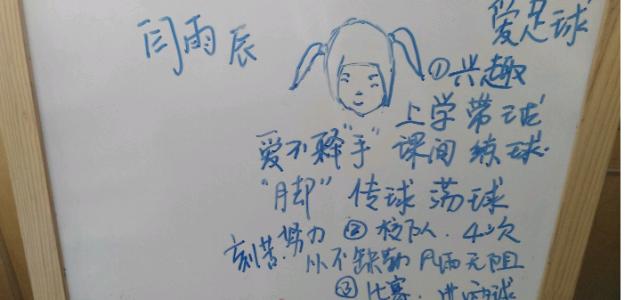 闫雨辰
爱足球
①兴趣
上学带球
爱不释"手" 课间练球
"脚" 传球 荡球
刻苦.努力 ②校队.4次
从不缺勤 风雨无阻
③比赛.